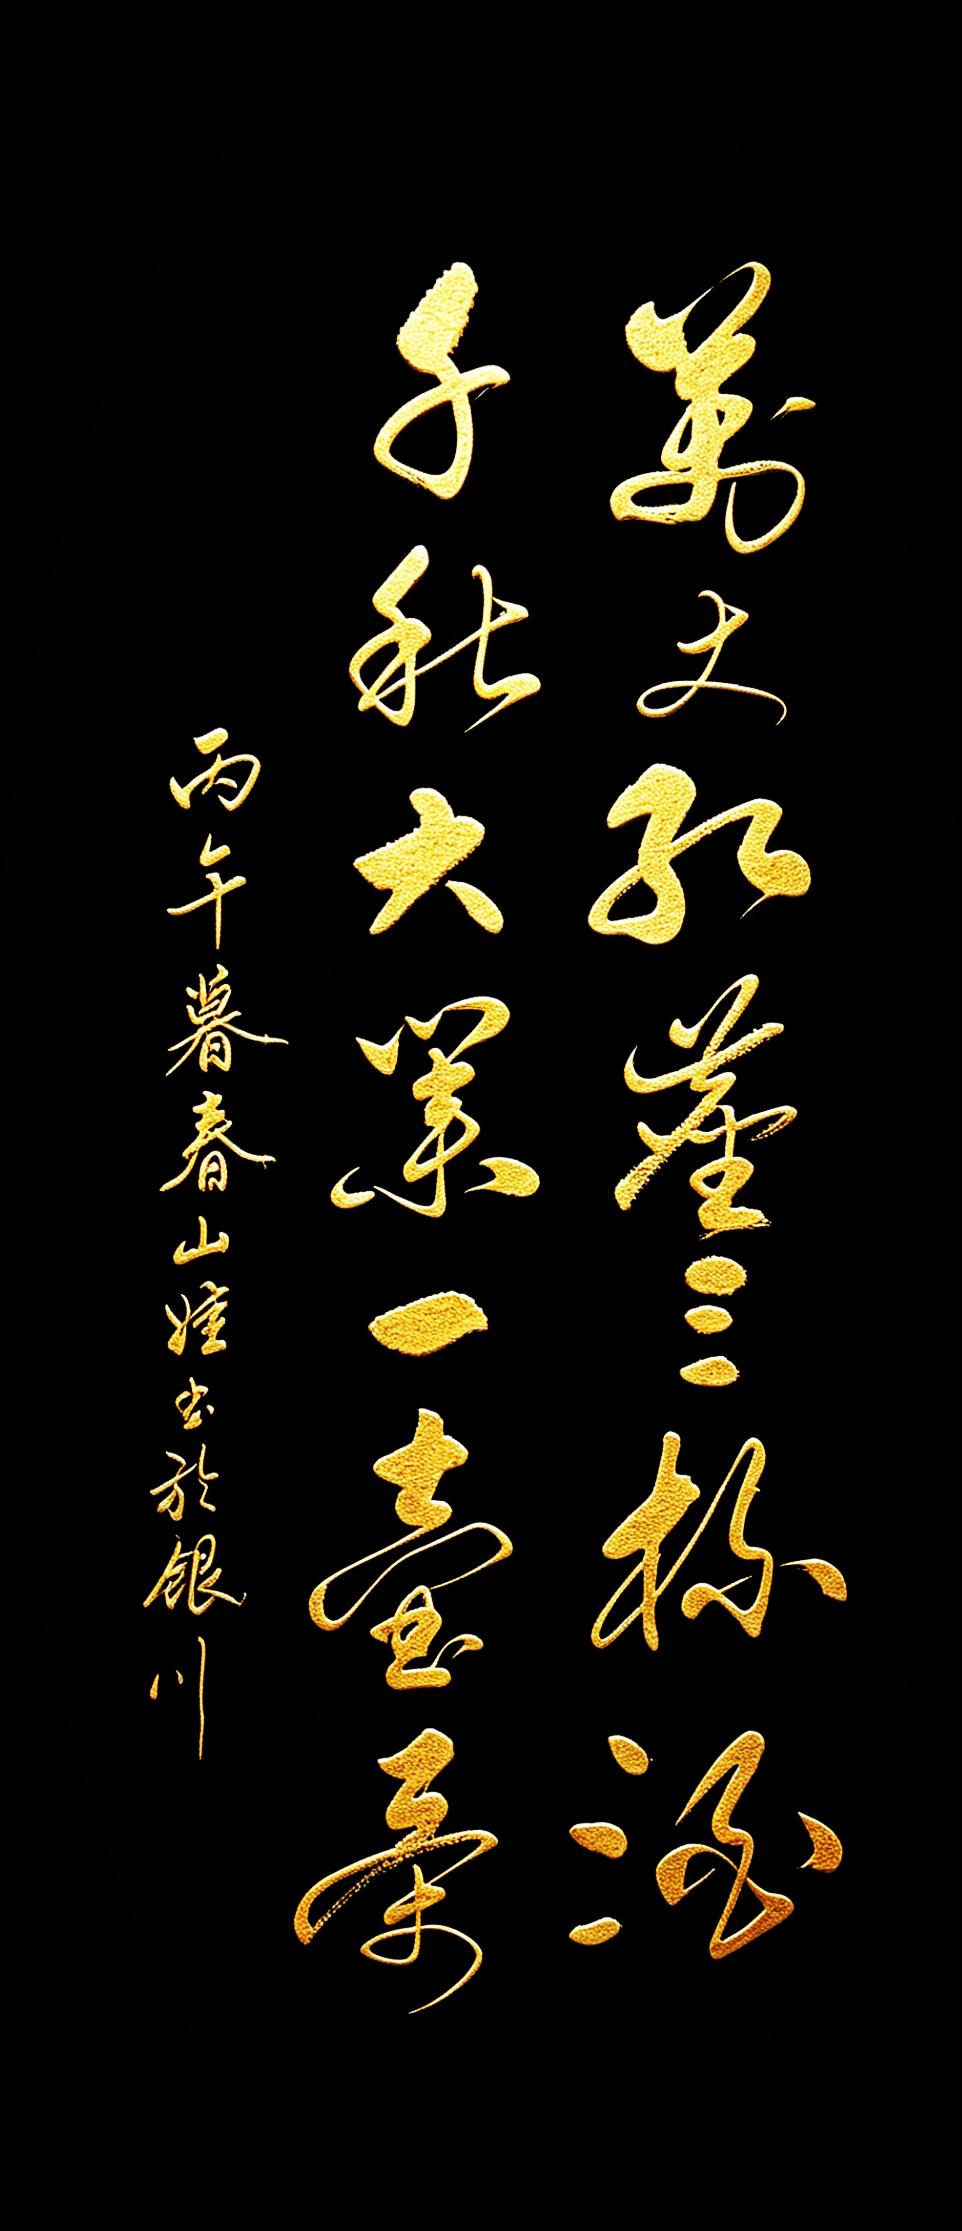 萬丈紅塵三杯酒
千秋大業一壺茶
丙午暮春山娃書於銀川